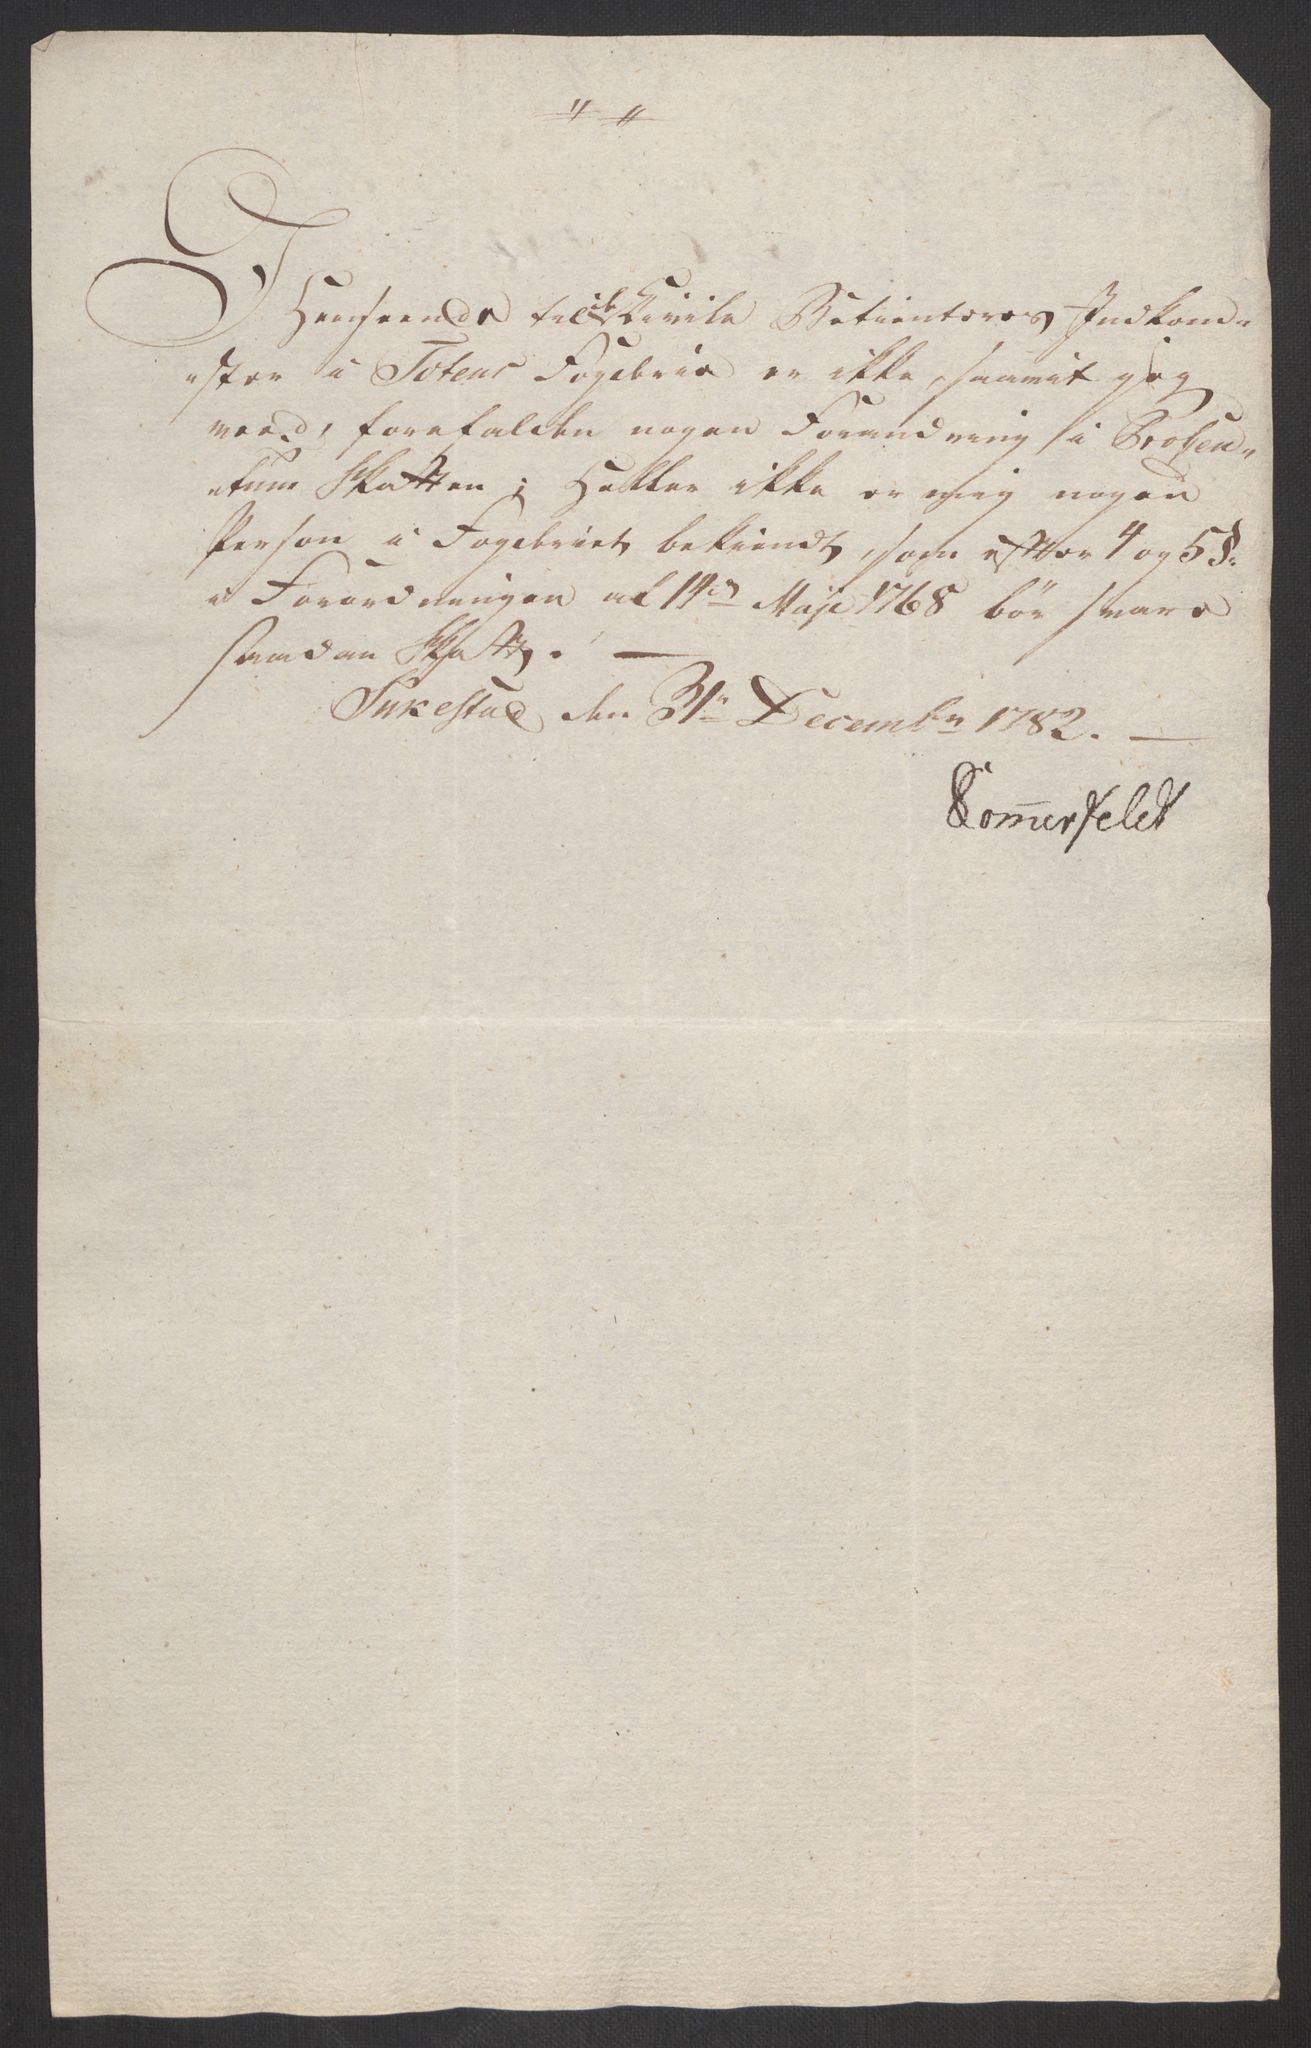 " "
I Henseende til de Civile Betienteres Indkom-
ster i Totens Fogderie er ikke, saavit jeg
veed, forefalden nogen Forandring i Prosen-
tum Skatten; Heller ikke er mig nogen
Person i Fogderiet bekiendt, som efter 4 og 5 §.
i Forordningen af 14de Maji 1768 bör svare
saadan Skatt. —
Sukestad den 31te Decembr 1782. —
Somerfeldt